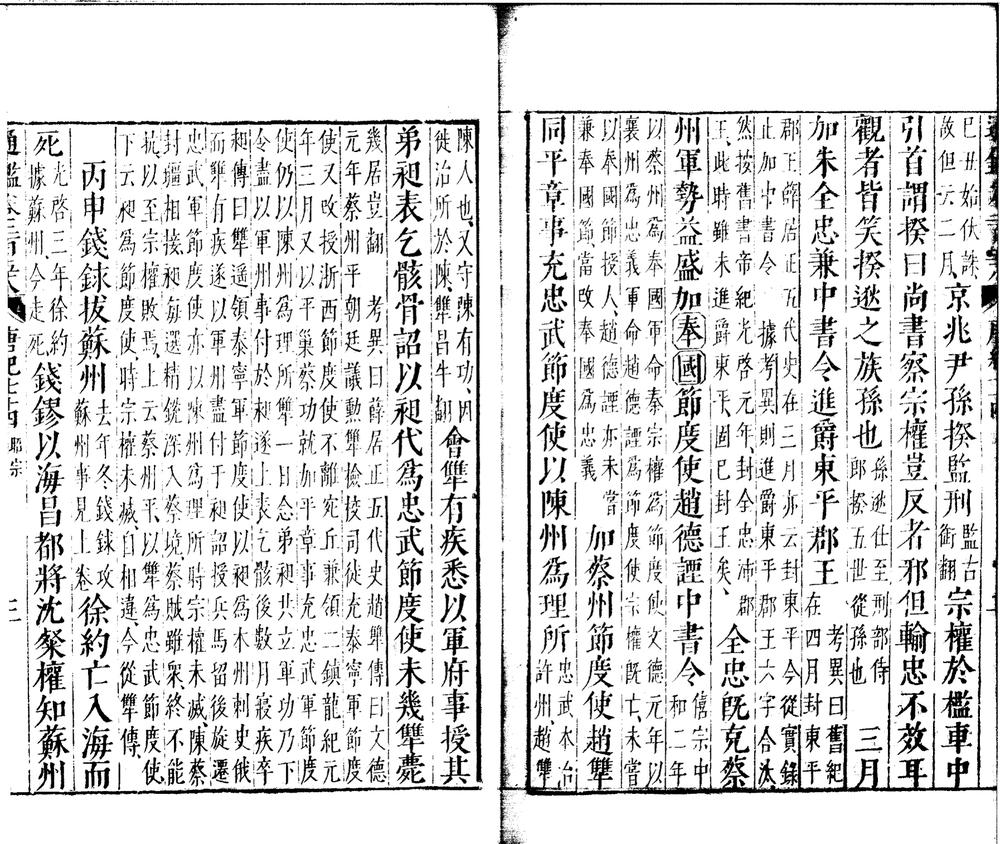 已丑始伏誅故但云二月京兆尹孫揆監刑監古銜翻宗權於檻車中
引首謂揆曰尚書察宗權豈反者邪但輸忠不效耳
觀者皆笑揆逖之族孫也孫逖仕至刑部侍郎揆五世從孫也三月
加朱全忠兼中書令進爵東平郡王考異曰舊紀在四月封東平
郡王薛居正五代史在三月亦云封東平今從實錄
止加中書令 據考異則進爵東平郡王六字合汰
然按舊書帝紀光啓元年封全忠沛郡王此時雖未進東平固已封王矣全忠既克蔡
州軍勢益盛加奉國節度使趙德諲中書令僖宗中和二年
以蔡州爲奉國軍命秦宗權爲節度使文德元年以
襄州爲忠義軍命趙德諲爲節度使宗權既亡未嘗
以奉國節授人趙德諲亦未嘗兼奉國節當改奉國爲忠義加蔡州節度使趙犨
同平章事充忠武節度使以陳州爲理所忠武本治許州趙犨
陳人也又守陳有功因徙治所於陳犨昌牛翻會犨有疾悉以軍府事授其
弟昶表乞骸骨詔以昶代爲忠武節度使未幾犨薨
幾居豈翻 考異曰薛居正五代史趙犨傳曰文德
元年蔡州平朝廷議勳犨檢挍司徒充泰寧軍節度
使又改授浙西節度使不離宛丘兼領二鎮龍紀元
年三月又以平巢蔡功就加平章事充忠武軍節度
使仍以陳州爲理所犨一日念弟昶共立軍功乃下
令盡以軍州事付於昶遂上表乞骸後數月寢疾卒
昶傳曰犨遥領泰寧軍節度使以昶爲本州刺史俄
而犨有疾遂以軍州盡付于昶詔授兵馬留後旋遷
忠武軍節度使亦以陳州爲理所時宗權未滅陳蔡
封疆相接昶每選精銳深入蔡境蔡賊雖衆終不能
抗以至宗權敗焉上云蔡州平以犨爲忠武節度使
下云昶爲節度使時宗權未滅自相違今從犨傳
丙申錢銶拔蘇州去年冬錢銶攻蘇州事見上卷徐約亡入海而
死光啓三年徐約據蘇州今走死錢鏐以海昌都將沈粲權知蘇州
通鑑卷二百五十八 唐紀七十四 昭宗 三